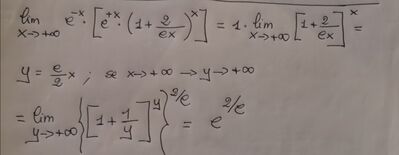 lim x→+∞ e^{-x} · [e^{+x} · (1 + 2/ex)^x] = 1 · lim x→+∞ [1 + 2/ex]^x =
y = e/2 x ; se x→+∞ → y→+∞
= lim y→+∞ {[1 + 1/y]^y}^{2/e} = e^{2/e}